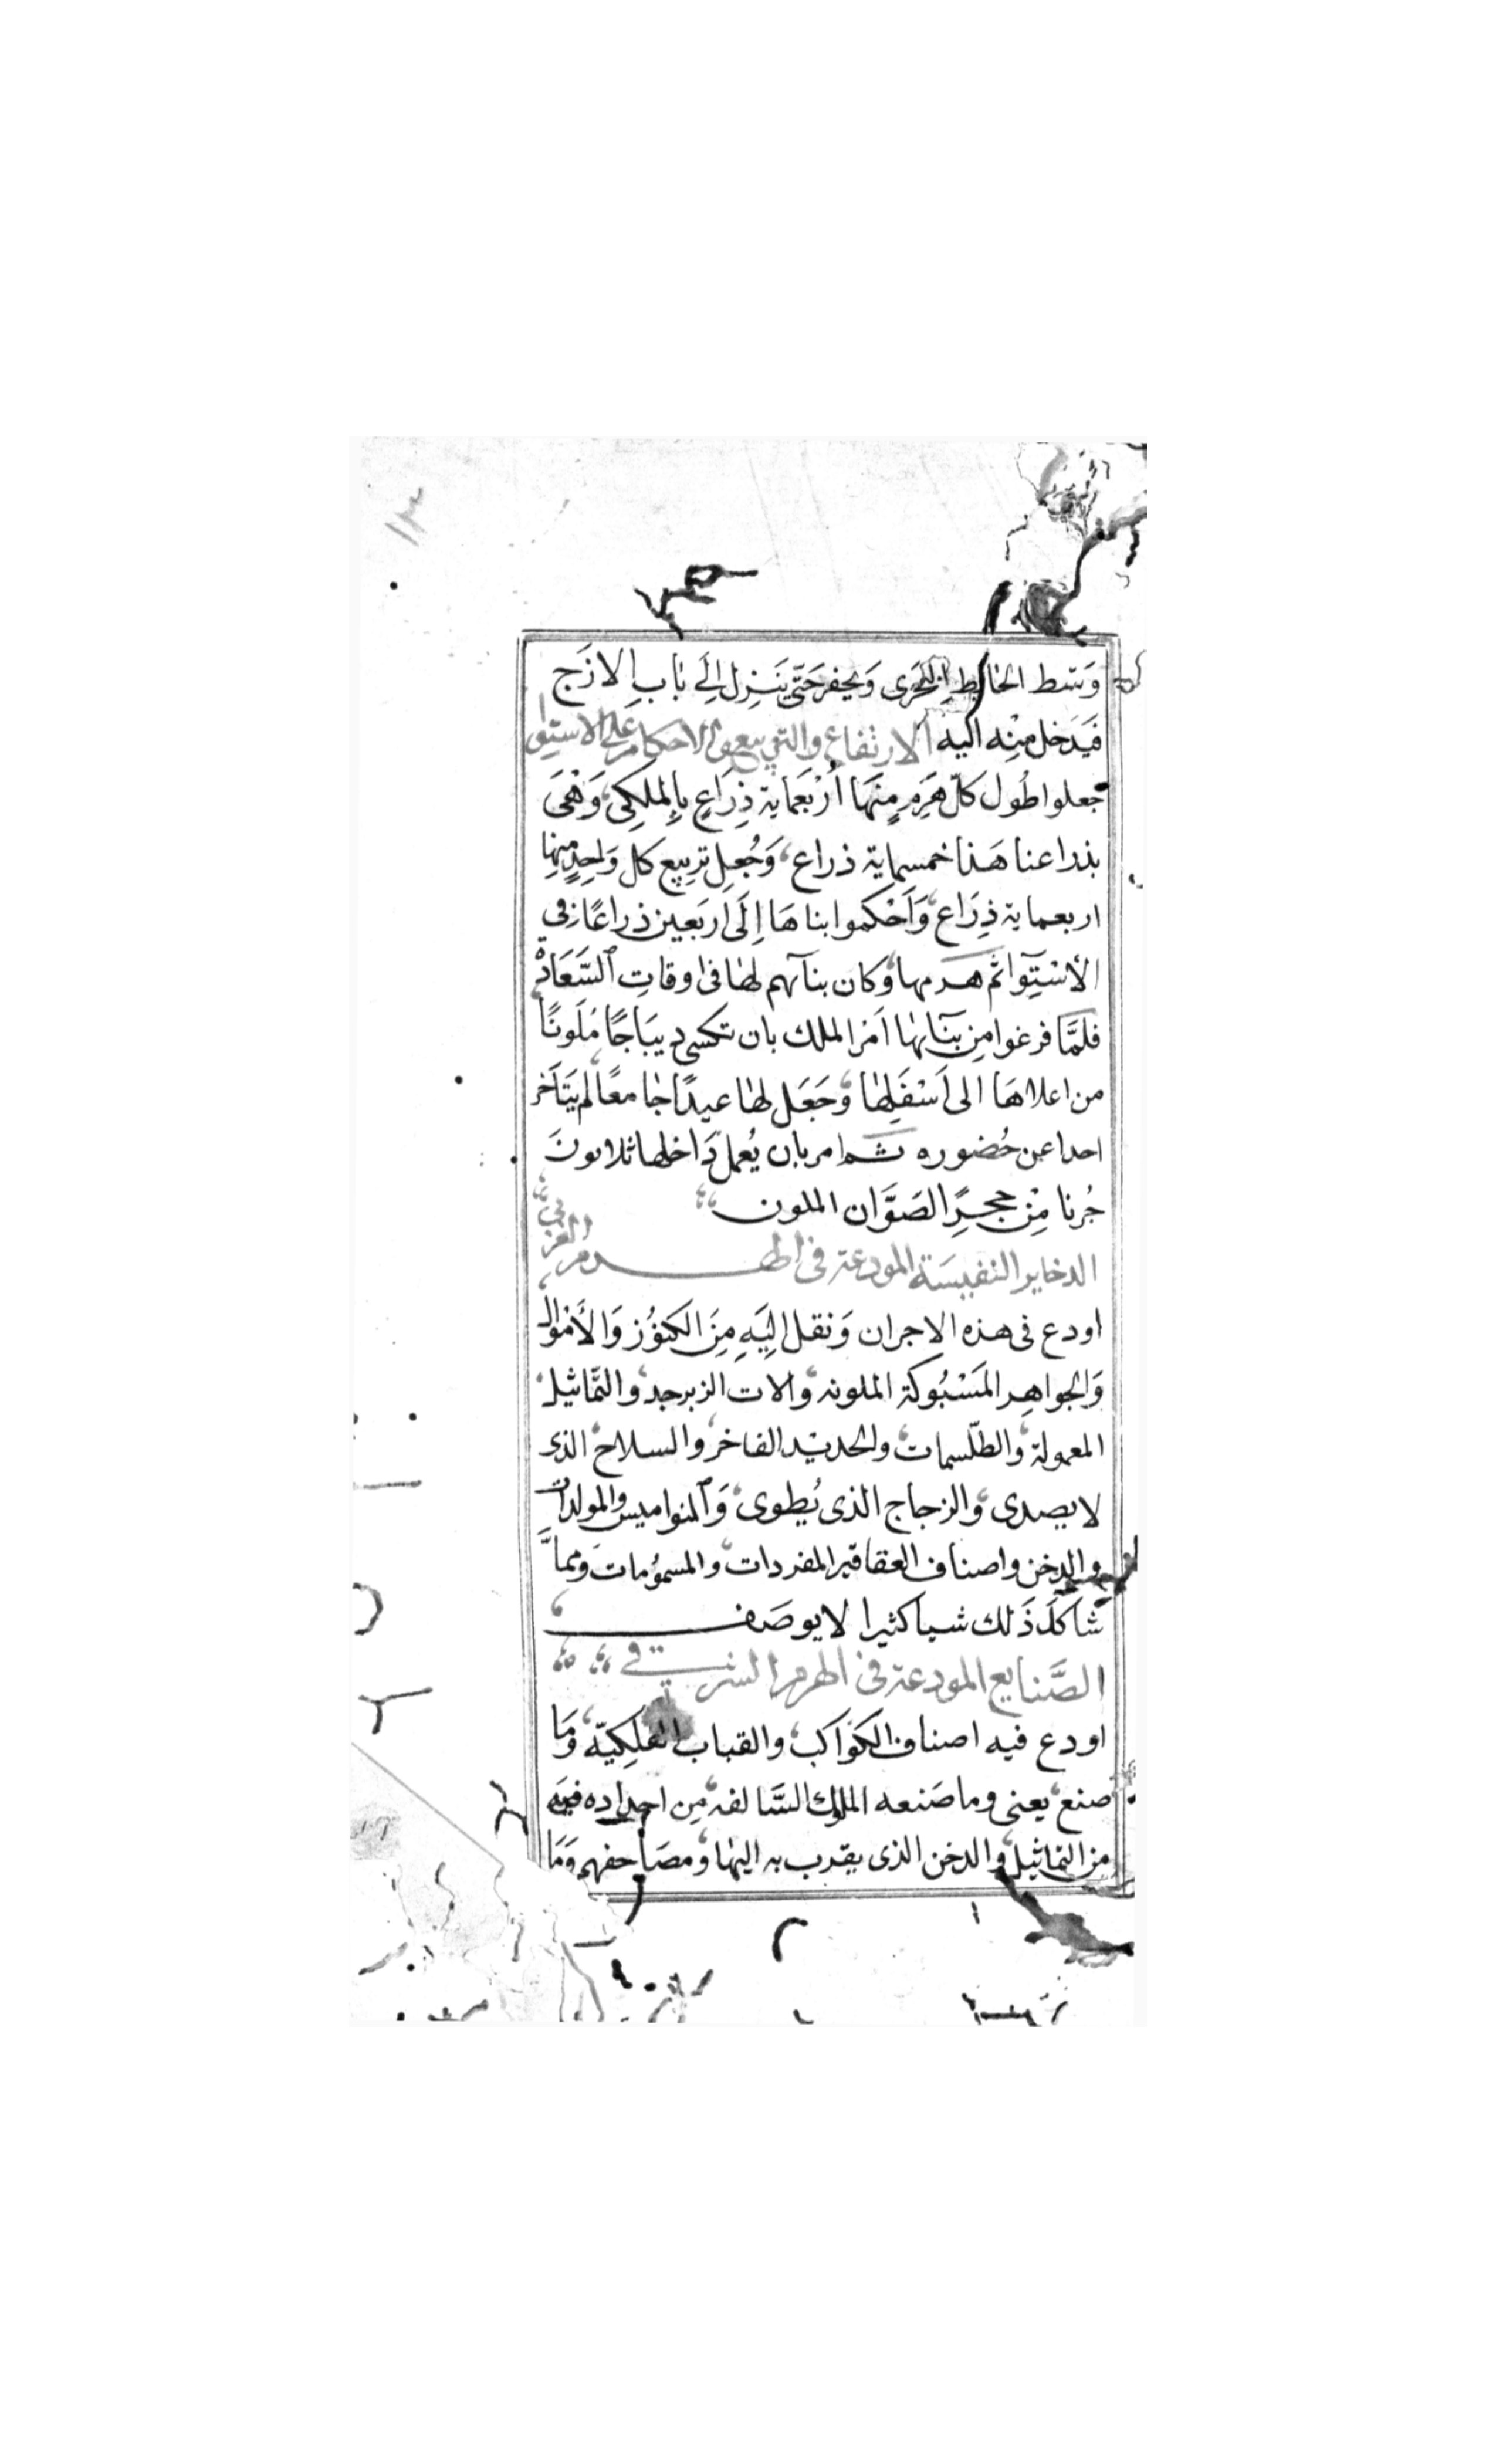 ١٣
وَسَط الحايط البَحَرى وَيحفر حَتّى يَنَزِل اِلَى بَاب الازَج
فيَدَخل مِنْه اليه الارتفاع والتربيع والاحكام على الاستوا
جعلوا طُول كلّ هَرَمٍ مِنهَا أرْبَعَماية ذِرَاعٍ بِالملكِى وَهْىَ
بذراعنا هَذا خمسماية ذراع وَجُعِل تربيع كل وَاحِدٍ مِنها
اربعماية ذِرَاع وَاَحْكموا بناهَا اِلَى اَربَعين ذراعًا فِي
الأسْتِوَآ ثم هَدمها وَكان بنآهم لهَا فى اوقاتِ السَّعَادة
فلمَّا فرغوا مِن بَنآيهَا اَمَر الملك بان تكسى ديبَاجًا مُلَونًا
من اعلاهَا الى اَسْفَلِهَا وَجَعَل لهَا عيدًا جَامعًا لم يَتَاَخر
احدا عن حُضوره ثم امر بان يُعمل دَاخلها ثلاثونَ
جُرنا مِنْ حجرِ الصَوَّان الملون
الدخاير النفيسَة المودعة فى الهرم الغربي
اودع فى هذه الاجران وَنقل اِليَهِ مِنَ الكنوُز وَالأَمْوال
وَالجواهِر المَسْبُوكة الملونه والات الزبرجد والتّماثيل
المعمولة والطلّسمات والحديد الفاخر والسلاح الذى
لا يصدى والزجاج الذى يُطوى وَالنواميس والمولدات
والدخن واصناف العقاقير المفردات والمسمُومات ومما
شاكلَ ذَلك شيا كثيرا لا يوصَف
الصَّنايع المودعة فى الهرم الشرقي
اودع فيه اصناف الكَوَاكب والقباب الفلكِيّة وَمَا
صنع يعنى وما صَنعه الملوك السَّالفه مِن اجداده فيَه
مِن التماثيل والدخن الذى يقرب به اليها ومصَاحفهم وَمَا